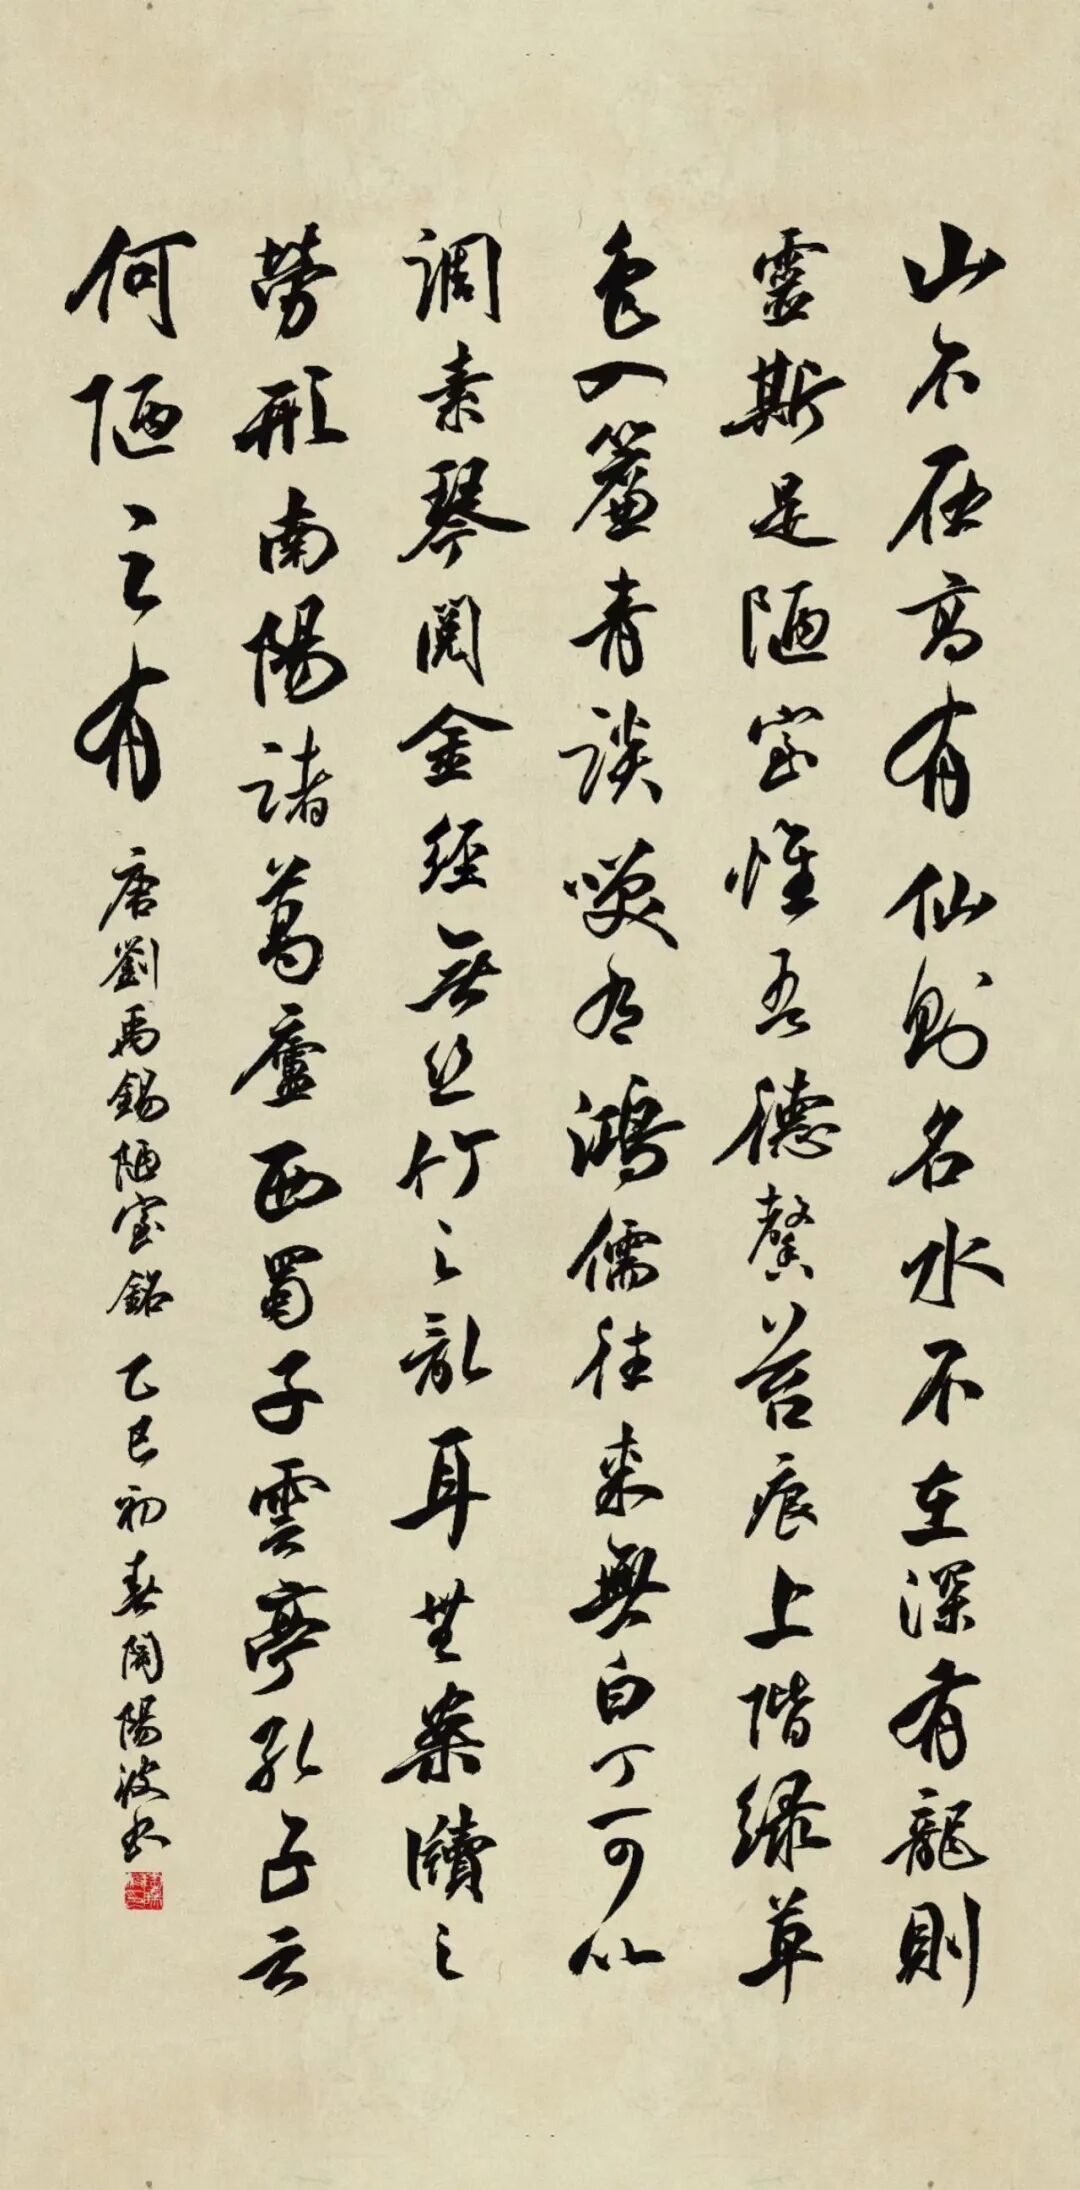 山不在高有仙則名水不在深有龍則
靈斯是陋室惟吾德馨苔痕上階綠草
色入簾青談笑有鴻儒往來無白丁可以
調素琴閱金經無絲竹之亂耳無案牘之
勞形南陽諸葛廬西蜀子雲亭孔子云
何陋之有
唐劉禹錫陋室銘 乙巳初春開陽波書